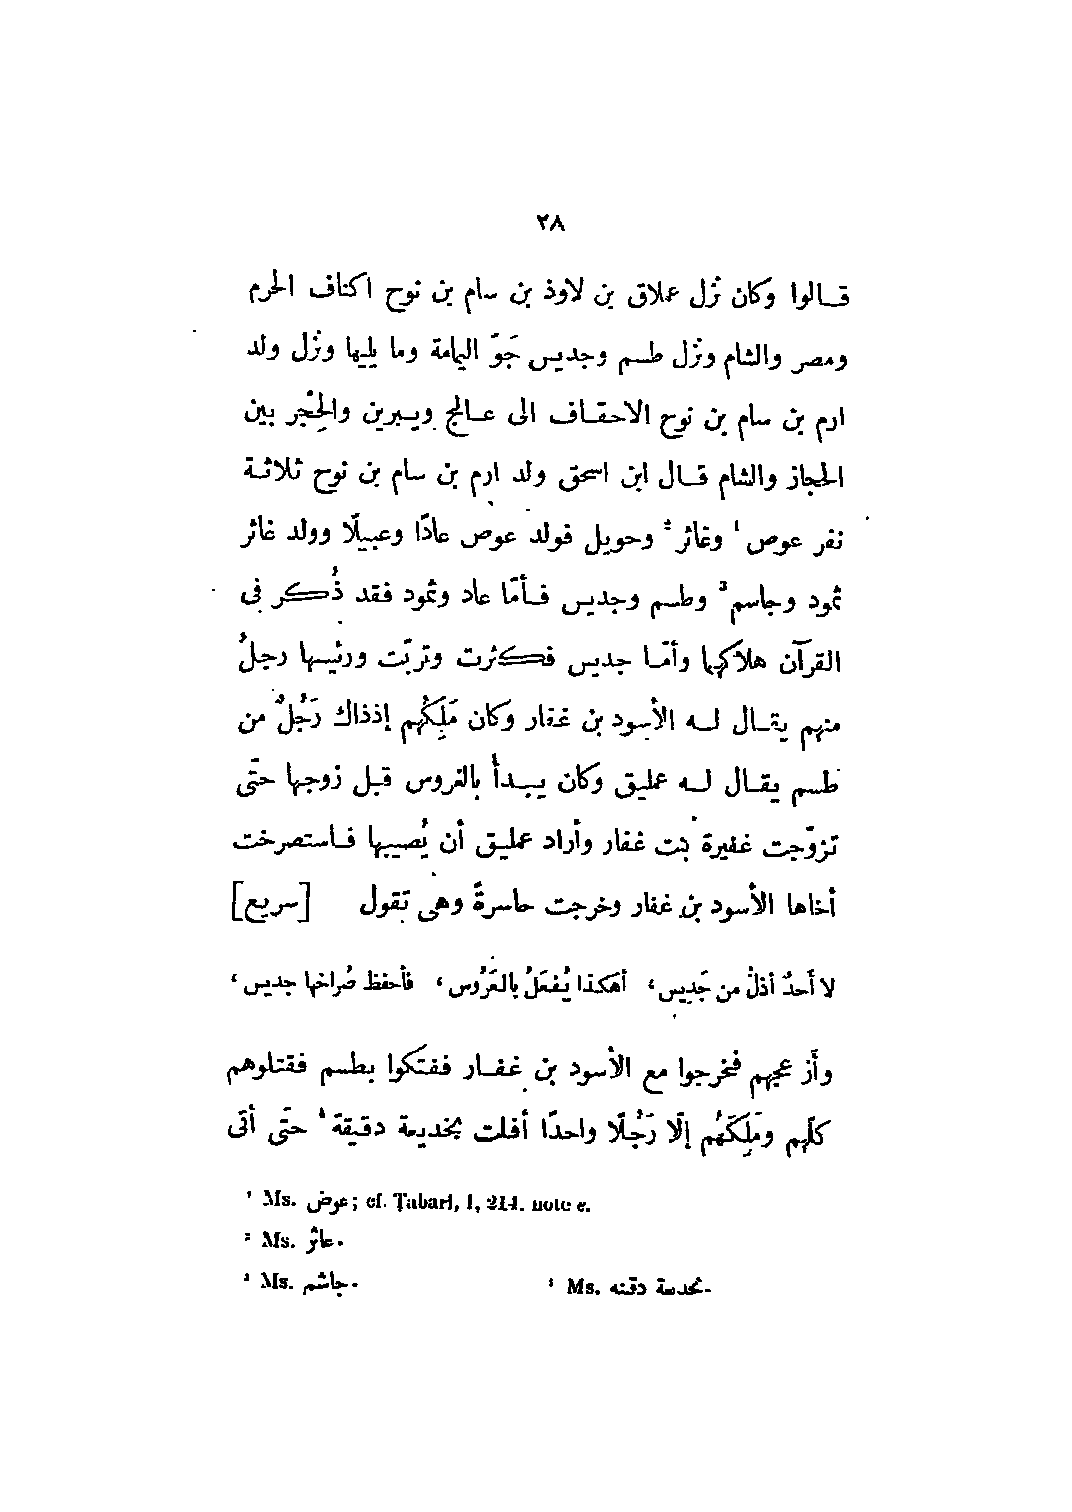 ٢٨
قـالوا وكان نزل علاق بن لاوذ بن سام بن نوح اكناف الحرم
ومصر والشام ونزل طسم وجديس جَوّ اليمامة وما يليها ونزل ولد
ارم بن سام بن نوح الاحقاف الى عالج ويبرين والحِجْر بين
الحجاز والشام قال ابن اسحق ولد ارم بن سام بن نوح ثلاثة
نفر عوص ¹ وغاثر ² وحويل فولد عوص عادًا وعبيلًا وولد غاثر
ثمود وجاسم ³ وطسم وجديس فأمّا عاد وثمود فقد ذُكر فى
القرآن هلاكها وأمّا جديس فكثرت وتربّت ورئيسها رجلُ
منهم يقال له الأسود بن غفار وكان مَلِكُهم إذذاك رَجُلٌ من
طسم يقال له عمليق وكان يبدأ بالعروس قبل زوجها حتّى
تزوّجت غفيرة بنت غفار وأراد عمليق أن يُصيبها فاستصرخت
أخاها الأسود بن غفار وخرجت حاسرةً وهى تقول [سريع]
لا أحدٌ أذلُّ من جَديس، أهكذا يُفعَلُ بالعَرُوس، فأحفظ صُراخها جديس،
وأزعجهم فخرجوا مع الأسود بن غفار ففتكوا بطسم فقتلوهم
كلّهم ومَلِكَهُم إلّا رَجُلًا واحدًا أفلت بخديعة دقيقة ⁴ حتّى أتى
¹ Ms. عوض; cf. Tabari, I, 214. note e.
² Ms. عاثر.
³ Ms. جاشم.
⁴ Ms. بخدمة دقنه.